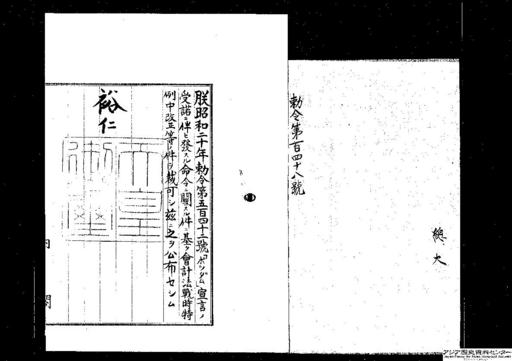 勅令第百四十八號
狹大
朕昭和二十年勅令第五百四十二號「ポツダム」宣言ノ
受諾ニ伴ヒ發スル命令ニ關スル件ニ基ク會計法戰時特
例中改正等ノ件ヲ裁可シ茲ニ之ヲ公布セシム
裕仁
天皇御璽
内閣
アジア歴史資料センター